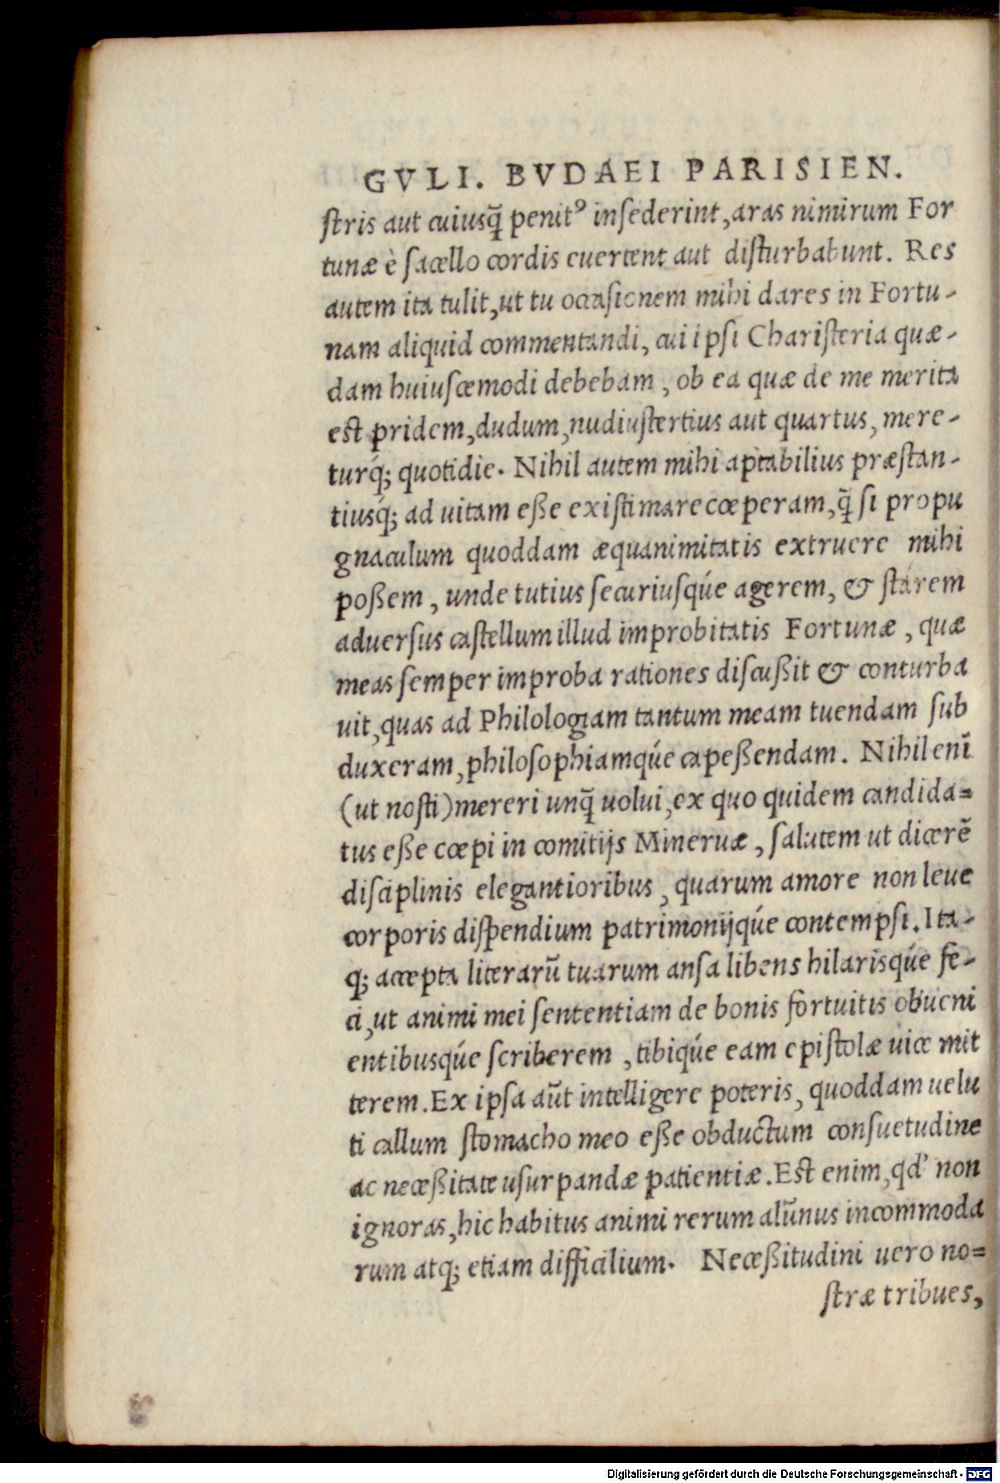 GVLI. BVDAEI PARISIEN.
stris aut cuiusq̃ penitꝰ insederint, aras nimirum For
tunæ è sacello cordis euertent aut disturbabunt. Res
autem ita tulit, ut tu occasionem mihi dares in Fortu-
nam aliquid commentandi, cui ipsi Charisteria quæ-
dam huiuscemodi debebam, ob ea quæ de me merita
est pridem, dudum, nudiustertius aut quartus, mere-
turq́; quotidie. Nihil autem mihi aptabilius præstan-
tiusq́; ad uitam eße existimare cœperam, q̃ si propu
gnaculum quoddam æquanimitatis extruere mihi
poßem, unde tutius securiusq́ue agerem, & starem
aduersus castellum illud improbitatis Fortunæ, quæ
meas semper improba rationes discußit & conturba
uit, quas ad Philologiam tantum meam tuendam sub
duxeram, philosophiamq́ue capeßendam. Nihil enĩ
(ut nosti) mereri unq̃ uolui, ex quo quidem candida=
tus eße cœpi in comitijs Mineruæ, salutem ut dicerẽ
disciplinis elegantioribus, quarum amore non leue
corporis dispendium patrimonijq́ue contempsi. Ita-
q; accepta literarũ tuarum ansa libens hilarisq́ue fe-
ci, ut animi mei sententiam de bonis fortuitis obueni
entibusq́ue scriberem, tibiq́ue eam epistolæ uice mit
terem. Ex ipsa aũt intelligere poteris, quoddam uelu
ti callum stomacho meo eße obductum consuetudine
ac neceßitate usurpandæ patientiæ. Est enim, qd' non
ignoras, hic habitus animi rerum alũnus incommoda
rum atq; etiam difficilium. Neceßitudini uero no=
stræ tribues,
Digitalisierung gefördert durch die Deutsche Forschungsgemeinschaft - DFG